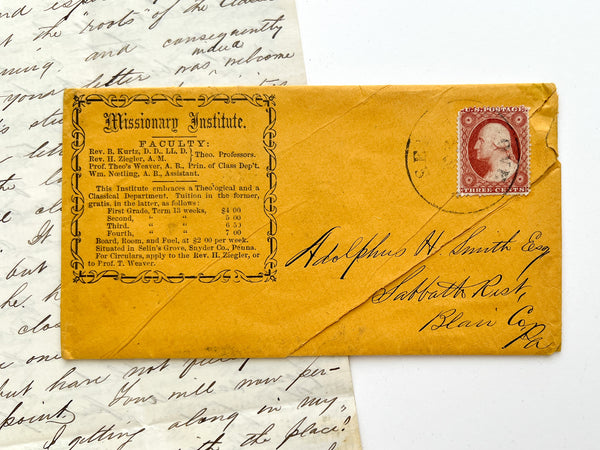 the "roots" of the
and consequently
your letter was welcome
It
but
the
clos
one
but have not
point. You will now per-
I getting along in my
with the place?
Missionary Institute.
FACULTY:
Rev. B. Kurtz, D. D., LL. D.
Rev. H. Ziegler, A. M. } Theo. Professors.
Prof. Theo's Weaver, A. B., Prin. of Class Dep't.
Wm. Notling, A. B., Assistant.
This Institute embraces a Theological and a
Classical Department. Tuition in the former,
gratis, in the latter, as follows:
First Grade, Term 13 weeks, $4 00
Second, " " 5 00
Third, " " 6 50
Fourth, " " 7 00
Board, Room, and Fuel, at $2 00 per week.
Situated in Selin's Grove, Snyder Co., Penna.
For Circulars, apply to the Rev. H. Ziegler, or
to Prof. T. Weaver.
U.S. POSTAGE
THREE CENTS
SE
Adolphus H. Smith Esq
Sabbath Rest,
Blair Co,
Pa